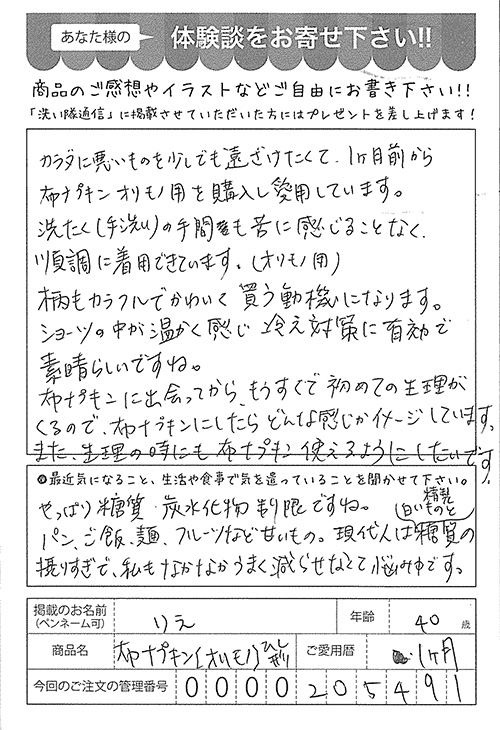 あなた様の 体験談をお寄せ下さい!!
商品のご感想やイラストなどご自由にお書き下さい!!
「洗い隊通信」に掲載させていただいた方にはプレゼントを差し上げます!
カラダに悪いものを少しでも遠ざけたくて、1ヶ月前から
布ナプキン オリモノ用を購入し愛用しています。
洗たく(手洗い)の手間も苦に感じることなく、
順調に着用できています。(オリモノ用)
柄もカラフルでかわいく 買う動機になります。
ショーツの中が温かく感じ 冷え対策に有効で
素晴らしいですね。
布ナプキンに出会ってから、もうすぐで初めての生理が
くるので、布ナプキンにしたらどんな感じかイメージしています。
また、生理の時にも布ナプキン使えるようにしたいです。
最近気になること、生活や食事で気を遣っていることを聞かせて下さい。
やっぱり糖質・炭水化物制限ですね。(精製 白いものと)
パン、ご飯、麺、フルーツなど甘いもの。現代人は糖質の
摂りすぎで、私もなかなかうまく減らせなくて悩み中です。
掲載のお名前(ペンネーム可) りえ 年齢 40歳
商品名 布ナプキン(オリモノ)ひし形 ご愛用暦 1ヶ月
今回のご注文の管理番号 0000205491